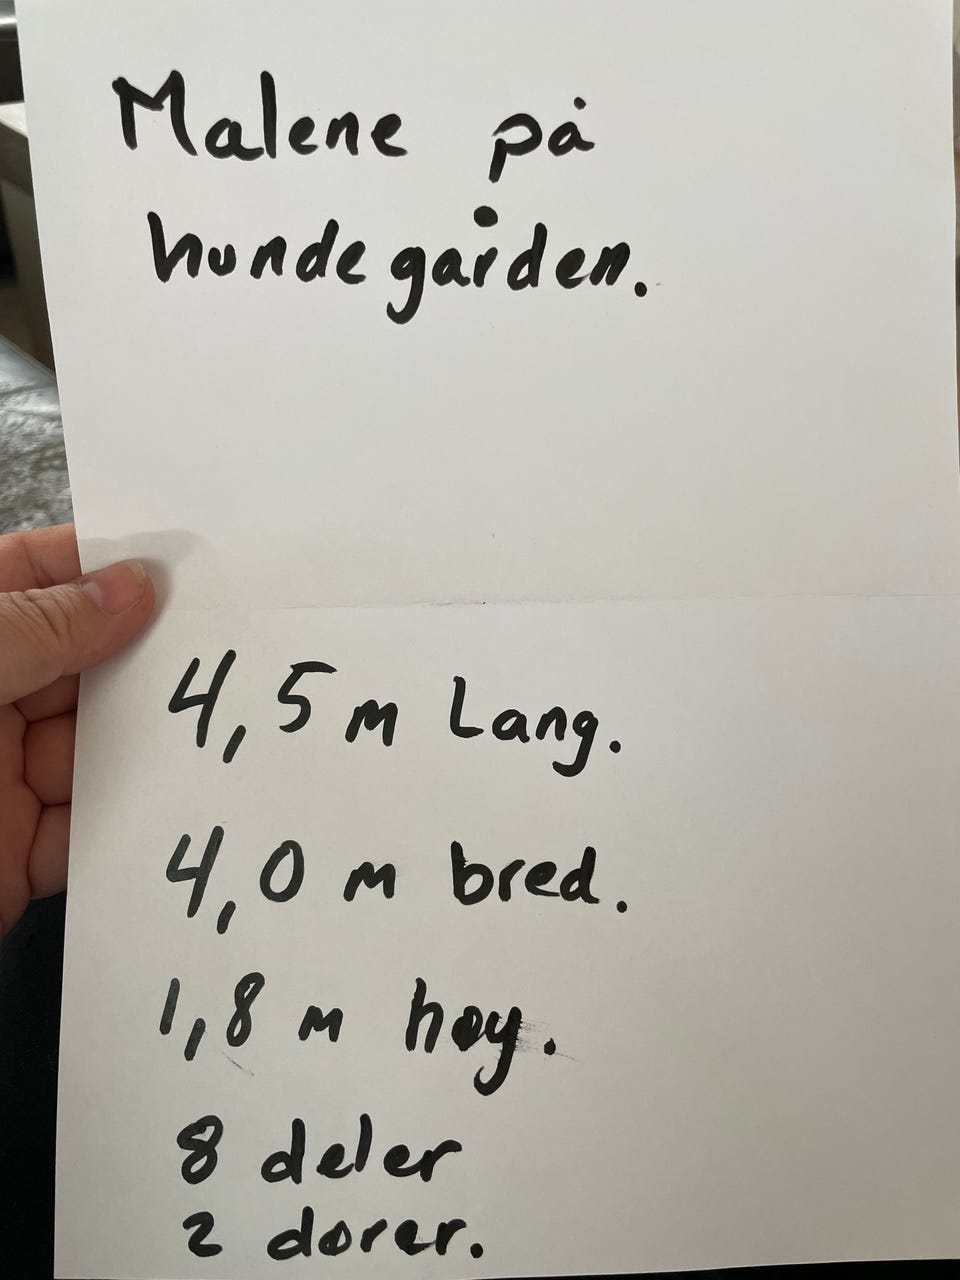 Malene på
hundegården.
4,5 m Lang.
4,0 m bred.
1,8 m høy.
8 deler
2 dører.